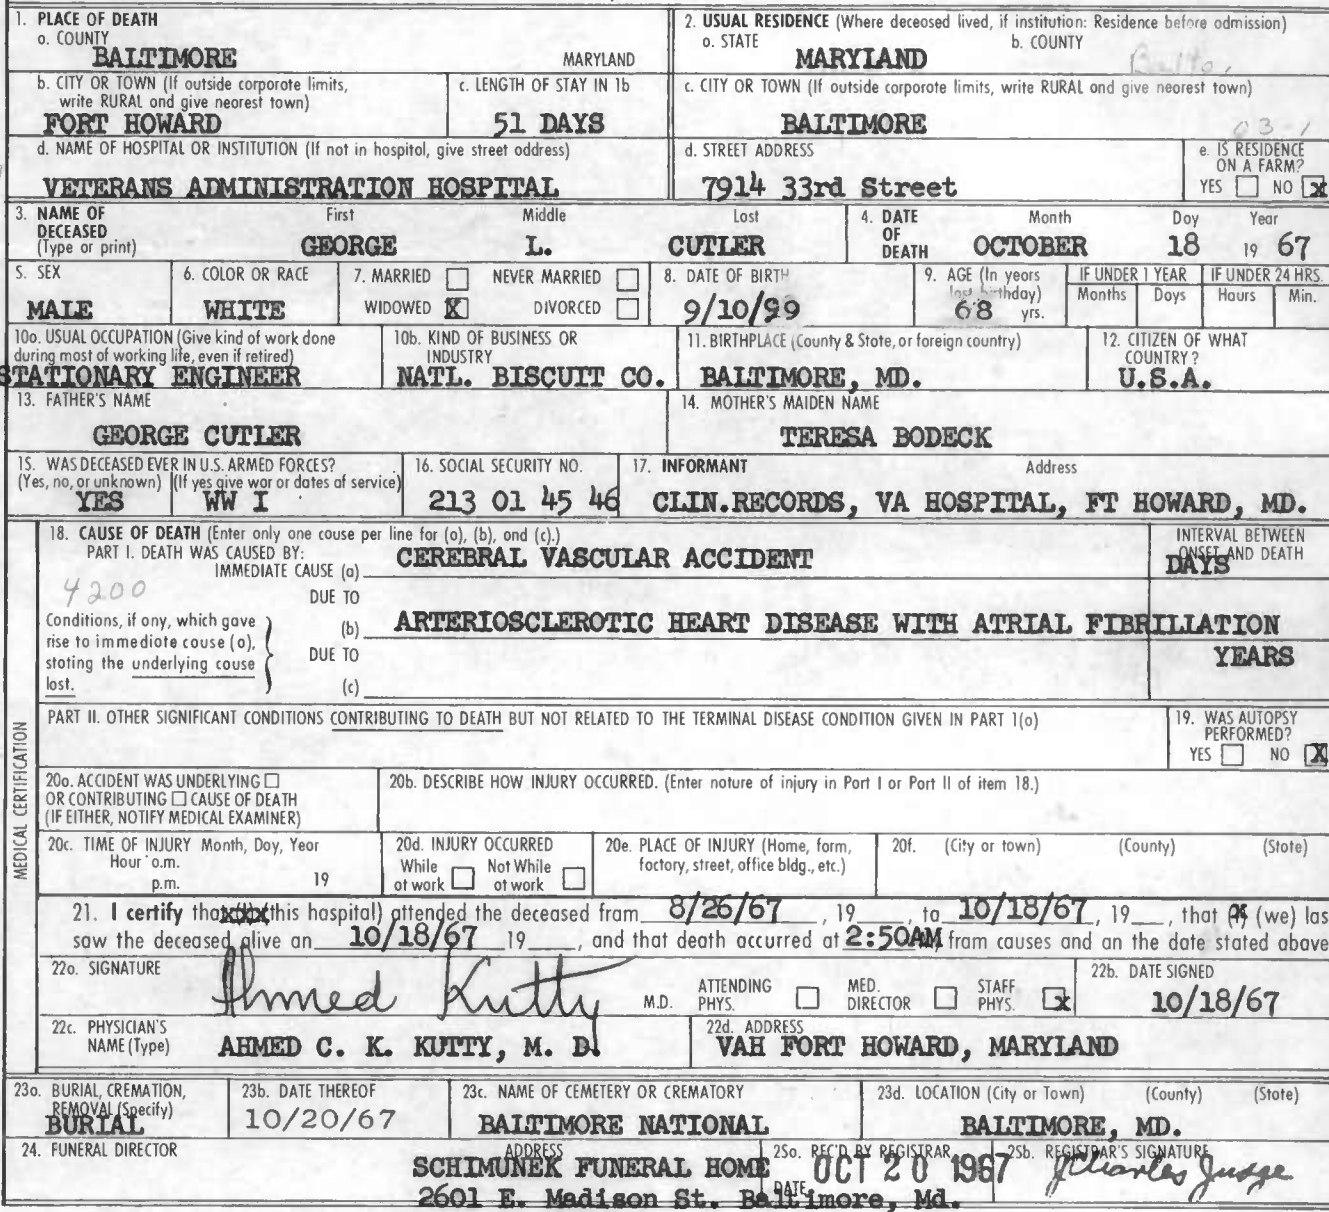 1. PLACE OF DEATH
a. COUNTY
BALTIMORE MARYLAND
2. USUAL RESIDENCE (Where deceased lived, if institution: Residence before admission)
a. STATE b. COUNTY
MARYLAND Balto.
b. CITY OR TOWN (If outside corporate limits, write RURAL and give nearest town)
FORT HOWARD
c. LENGTH OF STAY IN 1b
51 DAYS
c. CITY OR TOWN (If outside corporate limits, write RURAL and give nearest town)
BALTIMORE
03-1
d. NAME OF HOSPITAL OR INSTITUTION (If not in hospital, give street address)
VETERANS ADMINISTRATION HOSPITAL
d. STREET ADDRESS
7914 33rd Street
e. IS RESIDENCE ON A FARM?
YES NO X
3. NAME OF DECEASED (Type or print)
First Middle Last
GEORGE L. CUTLER
4. DATE OF DEATH
Month Day Year
OCTOBER 18 19 67
5. SEX
MALE
6. COLOR OR RACE
WHITE
7. MARRIED NEVER MARRIED
WIDOWED X DIVORCED
8. DATE OF BIRTH
9/10/99
9. AGE (In years last birthday)
68 yrs.
IF UNDER 1 YEAR
Months Days
IF UNDER 24 HRS.
Hours Min.
10a. USUAL OCCUPATION (Give kind of work done during most of working life, even if retired)
STATIONARY ENGINEER
10b. KIND OF BUSINESS OR INDUSTRY
NATL. BISCUIT CO.
11. BIRTHPLACE (County & State, or foreign country)
BALTIMORE, MD.
12. CITIZEN OF WHAT COUNTRY?
U.S.A.
13. FATHER'S NAME
GEORGE CUTLER
14. MOTHER'S MAIDEN NAME
TERESA BODECK
15. WAS DECEASED EVER IN U.S. ARMED FORCES?
(Yes, no, or unknown) (If yes give war or dates of service)
YES WW I
16. SOCIAL SECURITY NO.
213 01 45 46
17. INFORMANT Address
CLIN.RECORDS, VA HOSPITAL, FT HOWARD, MD.
MEDICAL CERTIFICATION
18. CAUSE OF DEATH (Enter only one cause per line for (a), (b), and (c).)
PART I. DEATH WAS CAUSED BY:
IMMEDIATE CAUSE (a) CEREBRAL VASCULAR ACCIDENT
INTERVAL BETWEEN ONSET AND DEATH
DAYS
4200
DUE TO
Conditions, if any, which gave rise to immediate cause (a), stating the underlying cause last.
(b) ARTERIOSCLEROTIC HEART DISEASE WITH ATRIAL FIBRILIATION
DUE TO YEARS
(c)
PART II. OTHER SIGNIFICANT CONDITIONS CONTRIBUTING TO DEATH BUT NOT RELATED TO THE TERMINAL DISEASE CONDITION GIVEN IN PART 1(a)
19. WAS AUTOPSY PERFORMED?
YES NO X
20a. ACCIDENT WAS UNDERLYING
OR CONTRIBUTING CAUSE OF DEATH
(IF EITHER, NOTIFY MEDICAL EXAMINER)
20b. DESCRIBE HOW INJURY OCCURRED. (Enter nature of injury in Part I or Part II of item 18.)
20c. TIME OF INJURY Month, Day, Year
Hour a.m.
p.m. 19
20d. INJURY OCCURRED
While at work Not While at work
20e. PLACE OF INJURY (Home, farm, factory, street, office bldg., etc.)
20f. (City or town) (County) (State)
21. I certify that (this hospital) attended the deceased from 8/26/67, 19__, to 10/18/67, 19__, that (we) las
saw the deceased alive on 10/18/67 19__, and that death occurred at 2:50AM from causes and on the date stated above
22a. SIGNATURE
Ahmed Kutty M.D.
ATTENDING PHYS. MED. DIRECTOR STAFF PHYS. X
22b. DATE SIGNED
10/18/67
22c. PHYSICIAN'S NAME (Type)
AHMED C. K. KUTTY, M. D.
22d. ADDRESS
VAH FORT HOWARD, MARYLAND
23a. BURIAL, CREMATION, REMOVAL (Specify)
BURIAL
23b. DATE THEREOF
10/20/67
23c. NAME OF CEMETERY OR CREMATORY
BALTIMORE NATIONAL
23d. LOCATION (City or Town) (County) (State)
BALTIMORE, MD.
24. FUNERAL DIRECTOR ADDRESS
SCHIMUNEK FUNERAL HOME
2601 E. Madison St. Baltimore, Md.
25a. REC'D BY REGISTRAR
DATE OCT 20 1967
25b. REGISTRAR'S SIGNATURE
J Charles Judge